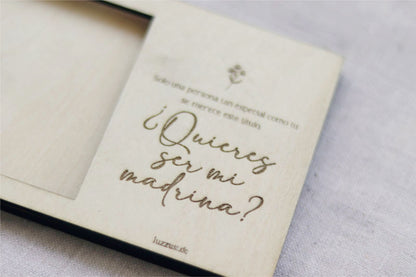 Solo una persona tan especial como tú
se merece este título
¿Quieres
ser mi
madrina?